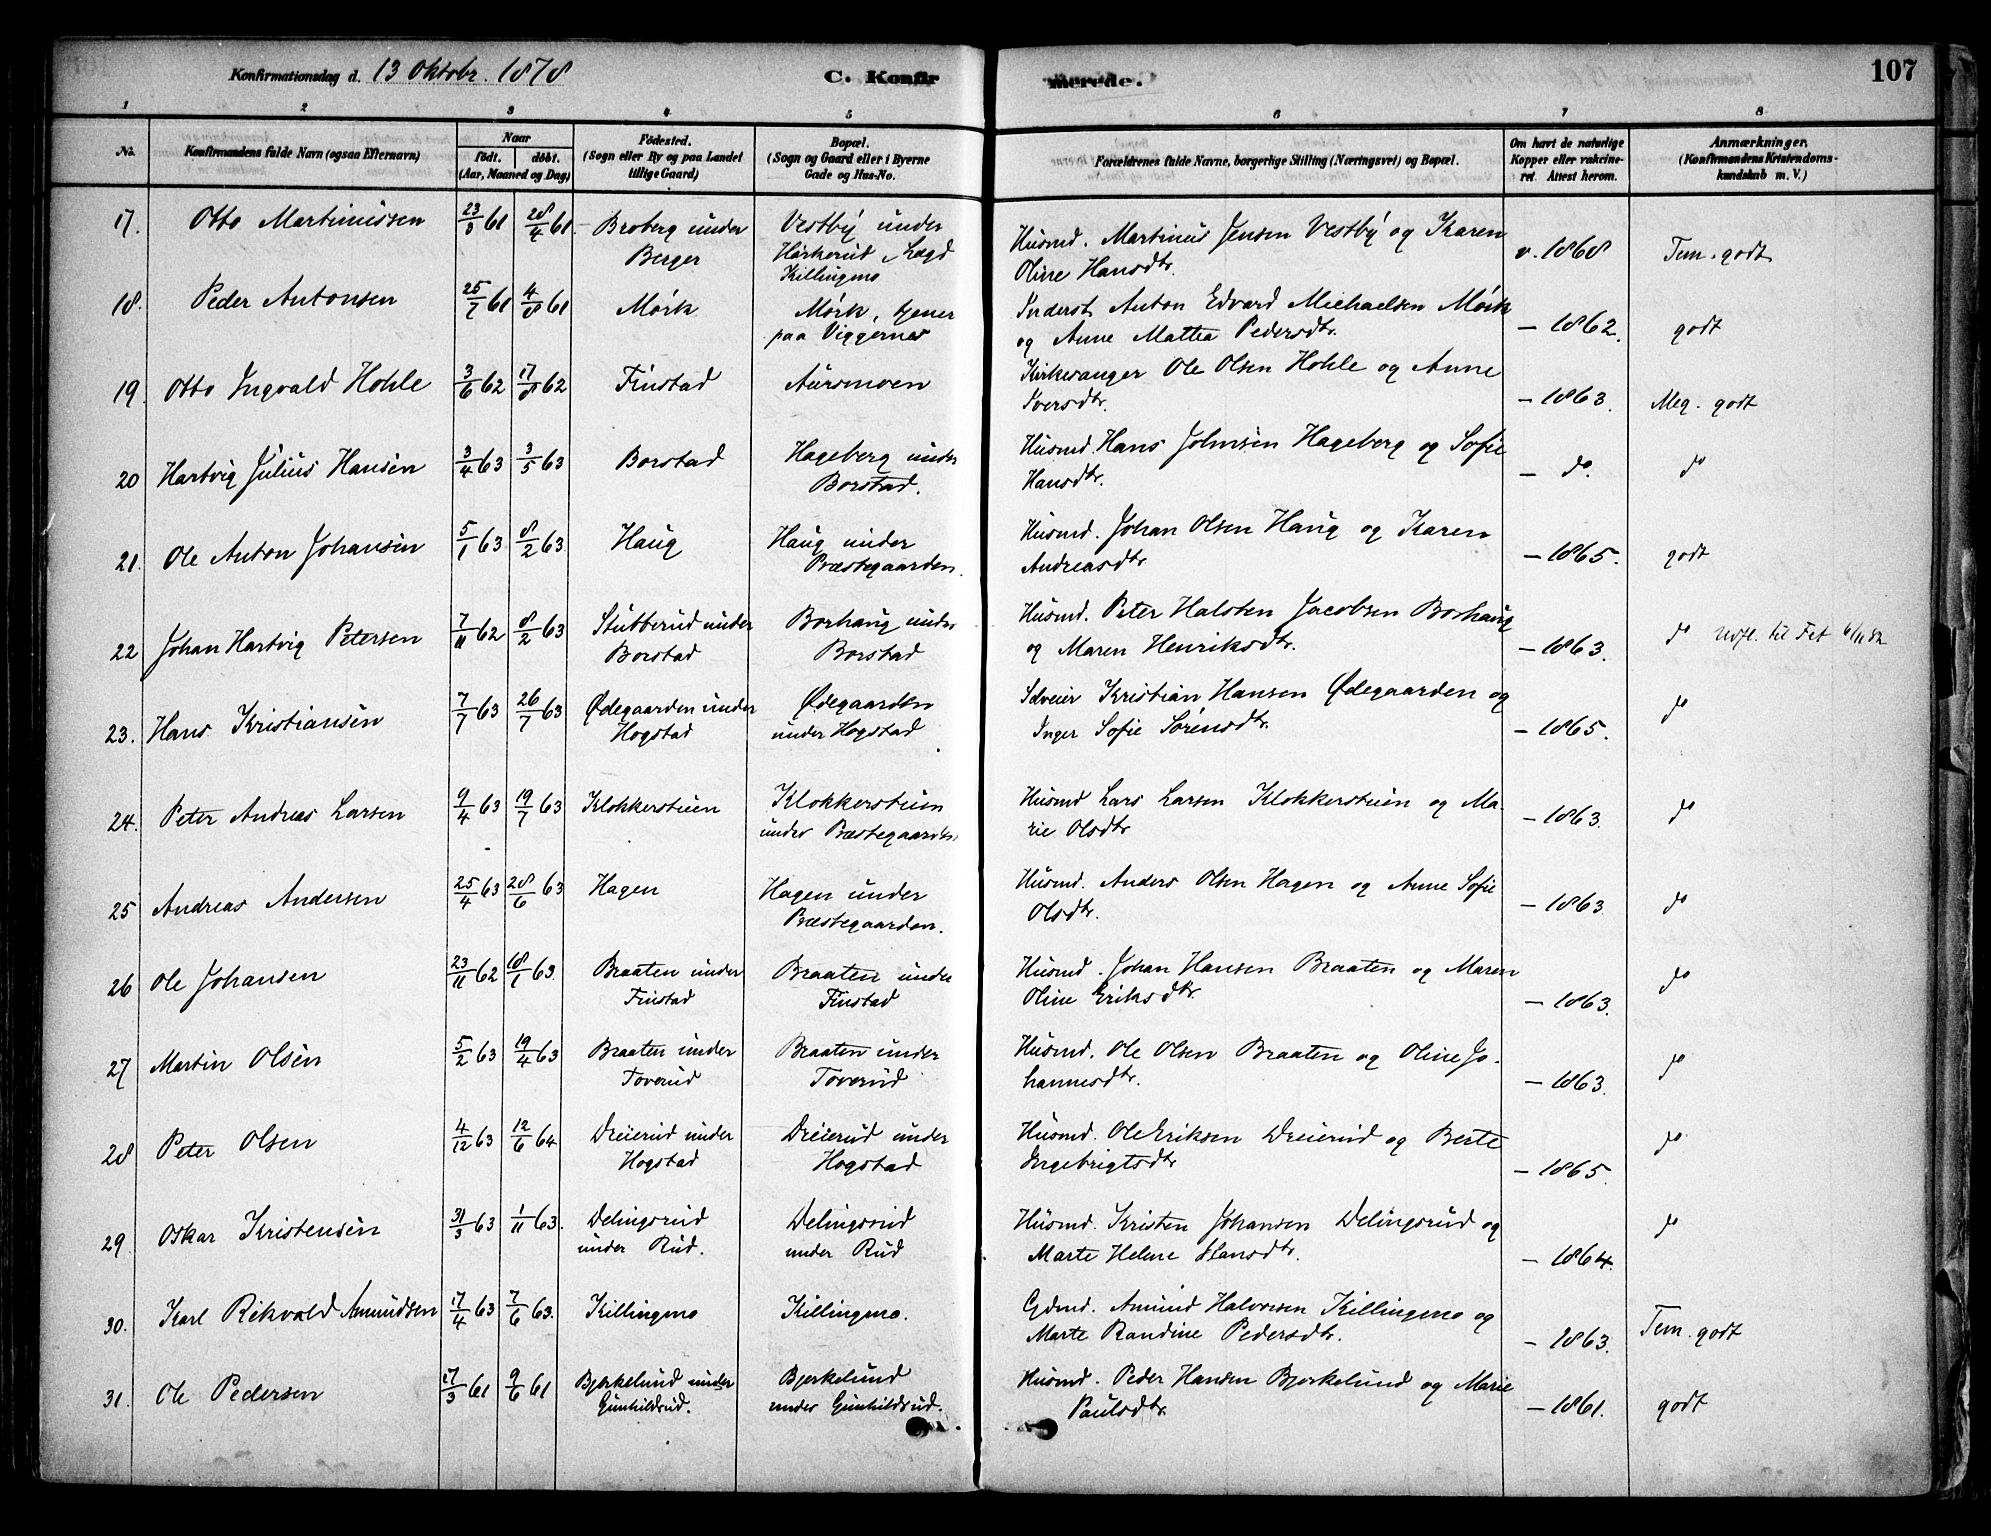 Konfirmationsdag d. 13 Oktobr. 1878
C. Konfir
merede.
107
1 2 3 4 5 6 7 8
No.
Konfirmandens fulde Navn (ogsaa Efternavn)
Naar
født. døbt.
(Aar, Maaned og Dag)
Fødested.
(Sogn eller By og paa Landet
tillige Gaard)
Bopæl.
(Sogn og Gaard eller i Byerne
Gade og Hus-No.
Forældrenes fulde Navne, borgerlige Stilling (Næringsvei) og Bopæl.
Om havt de naturlige
Kopper eller vakcine-
ret. Attest herom.
Anmærkninger.
(Konfirmandens Kristendoms-
kundskab m. V.)
17. Otto Martinussen 23/3 61 28/4 61. Broberg under
Berger
Vestby under
Hörkerud Lægd
Killingmo
Husmd. Martinus Jensen Vestby og Karen
Oline Hansdtr.
v. 1868 Tem. godt
18. Peder Antonsen 25/7 61 4/8 61 Mørk
Mørk, tjener
paa Viggernes
Inderst Anton Edvard Michaelsen Mørk
og Anne Mattea Pedersdtr.
– 1862. godt
19. Otto Ingvald Hohle 3/6 62 17/8 62 Finstad Aursmoen
Kirkesanger Ole Olsen Hohle og Anne
Iversdtr.
– 1863. Meg. godt
20 Hartvig Julius Hansen 3/4 63 3/5 63 Borstad
Hageberg under
Borstad.
Husmd. Hans Johnsen Hageberg og Sofie
Hansdtr.
– do. do
21. Ole Anton Johansen 5/1 63 8/2 63 Haug
Haug under
Præstegaarden.
Husmd. Johan Olsen Haug og Karen
Andreasdtr
– 1865. godt
22 Johan Hartvig Petersen 7/11 62 8/2 63 Stubberud under
Borstad
Borhaug under
Borstad
Husmd. Peter Halsten Jacobsen Borhaug
og Maren Henriksdtr.
– 1863. do Udfl. til Fet 6/11 82
23. Hans Kristiansen 7/7 63 26/7 63 Ødegaarden under
Hogstad
Ødegaarden
under Hogstad
Selveier Kristian Hansen Ødegaarden og
Inger Sofie Sørensdtr.
– 1865. do
24. Peter Andreas Larsen 9/4 63 19/7 63 Klokkerstuen
Klokkerstuen
under Præstegaarden
Husmd Lars Larsen Klokkerstuen og Ma-
rie Olsdtr
– 1863. do
25 Andreas Andersen 25/4 63 28/6 63 Hagen
Hagen under
Præstegaarden.
Husmd. Anders Olsen Hagen og Anne Sofie
Olsdtr.
– 1863 do
26 Ole Johansen 23/11 62 18/1 63 Braaten under
Finstad
Braaten under
Finstad
Husmd. Johan Hansen Braaten og Maren
Oline Eriksdtr.
– 1863. do
27 Martin Olsen 5/2 63 19/4 63 Braaten under
Toverud
Braaten under
Toverud
Husmd. Ole Olsen Braaten og Oline Jo-
hannesdtr.
– 1863. do
28 Peter Olsen 4/12 63 12/6 64 Dreierud under
Hogstad
Dreierud under
Hogstad
Husmd. Ole Eriksen Dreierud og Berte
Ingebrigtsdtr
– 1865. do
29. Oskar Kristensen 31/3 63 1/11 63. Delingsrud
under Rud.
Delingsrud
under Rud
Husmd. Kristen Johansen Delingsrud og
Marte Helene Hansdtr.
– 1864. do
30. Karl Rikvald Amundsen 17/4 63 7/6 63. Killingmo
Killingmo.
Gdmd. Amund Halvorsen Killingmo og
Marte Randine Pedersdtr.
– 1863. Tem. godt
31. Ole Pedersen 17/3 61 9/6 61 Bjerkelund under
Gunhildsrud.
Bjerkelund
under Gunhildsrud.
Husmd. Peder Hansen Bjerkelund og Marie
Paulsdtr.
– 1861. godt